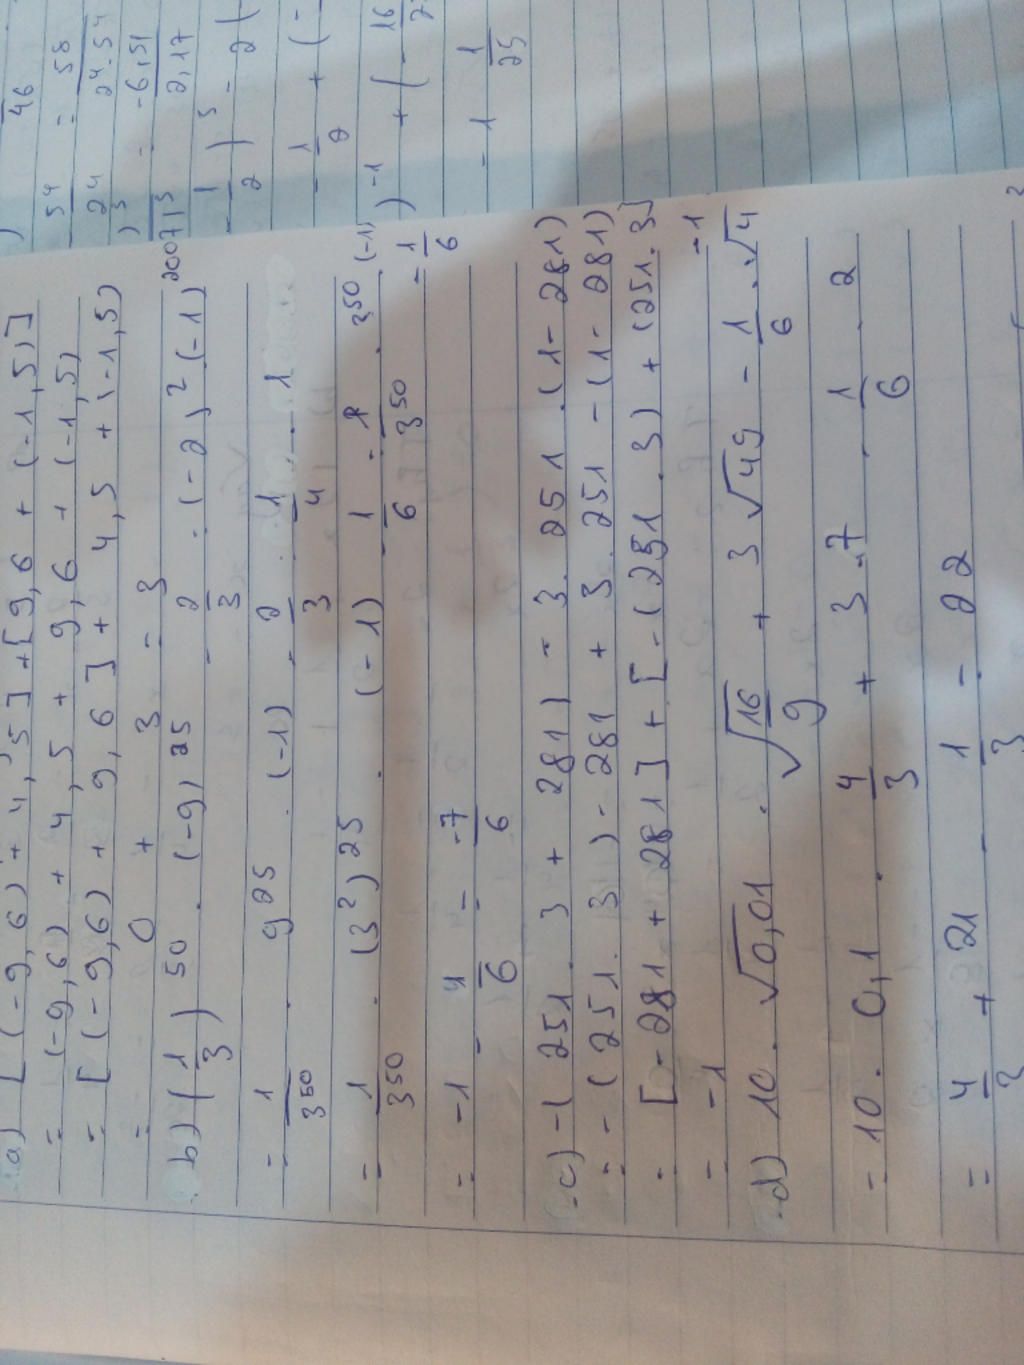 a) [(-9,6) + 4,5] + [9,6 + (-1,5)]
= (-9,6) + 4,5 + 9,6 + (-1,5)
= [(-9,6) + 9,6] + 4,5 + (-1,5)
= 0 + 3 = 3
b) (1/3)^50 . (-9)^25 - 2/3 : (-2)^2 (-1)^2007
= 1/3^50 . 9^25 . (-1) - 2/3 . 1/4 . 1
= 1/3^50 . (3^2)^25 . (-1) - 1/6 = 1/3^50 . 3^50 (-1) - 1/6
= -1 - 1/6 = -7/6
c) -(251 . 3 + 281) + 3 . 251 . (1 - 281)
= -(251 . 3) - 281 + 3 . 251 - (1 - 281)
= [-281 + 281] + [-(251 . 3) + (251 . 3)] - 1
= -1
d) 10 . √0,01 . √16/9 + 3√49 - 1/6 . √4
= 10 . 0,1 . 4/3 + 3 . 7 - 1/6 . 2
= 4/3 + 21 - 1/3 = 22
46
54 = 58
24 24.54
-6,51
2,17